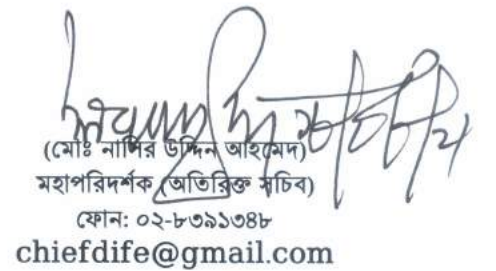 (মোঃ নাসির উদ্দিন আহমেদ)
মহাপরিদর্শক (অতিরিক্ত সচিব)
ফোন: ০২-৮৩৯১৩৪৮
chiefdife@gmail.com